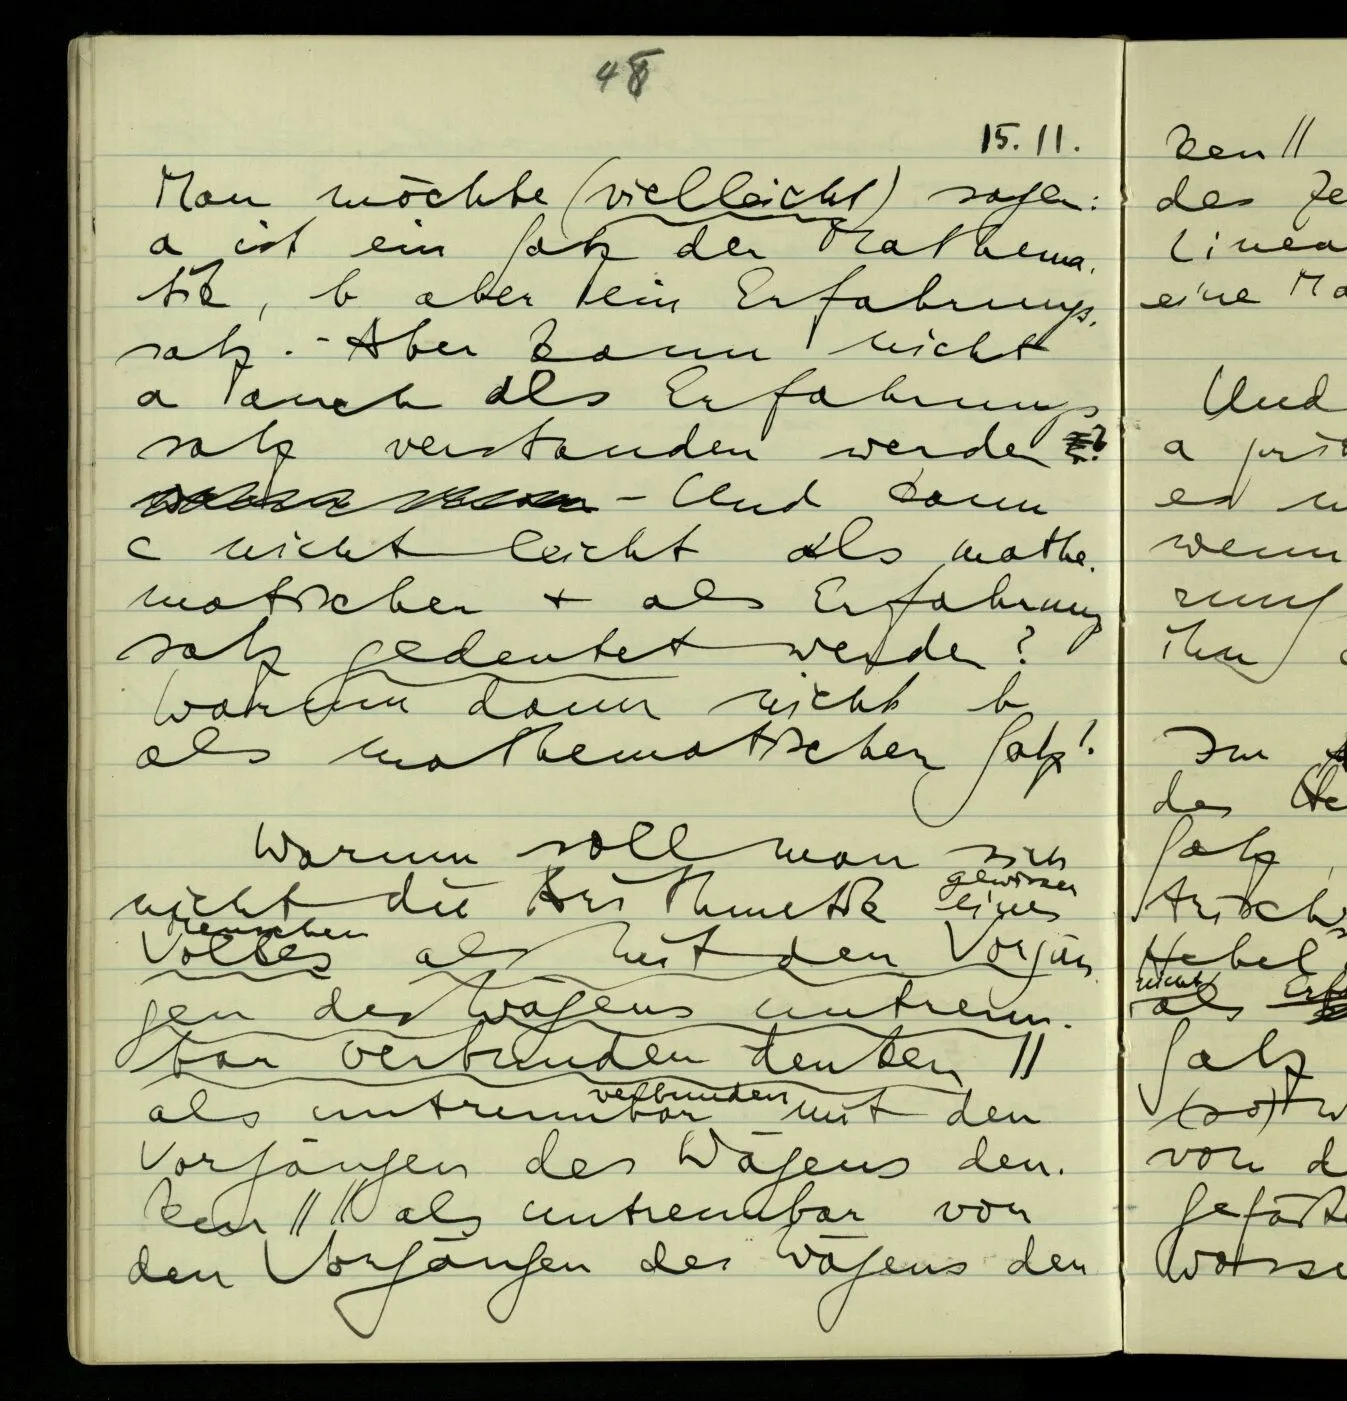 48
15. 11.
Man möchte (vielleicht) sagen:
a ist ein Satz der Mathema-
tik, b aber ein Erfahrungs-
satz. – Aber kann nicht
a auch als Erfahrungs
satz verstanden werden?
– Und kann
c nicht leicht als mathe-
matischer + als Erfahrungs
satz gedeutet werden?
Warum dann nicht b
als mathematischer Satz!
Warum soll man sich
nicht die Arithmetik eines gewisser
Volkes Menschen als mit den Vorgän
gen des Wägens untrenn-
bar verbunden denken //
als untrennbar verbunden mit den
Vorgängen des Wägens den-
ken // // als untrennbar von
den Vorgängen des Wägens den
ken //
des
Linea
eine Ma
Und
a
es
wenn
rung
ihn
Im
des He
Satz
Hebel
nicht
als
Satz
(so)
von d